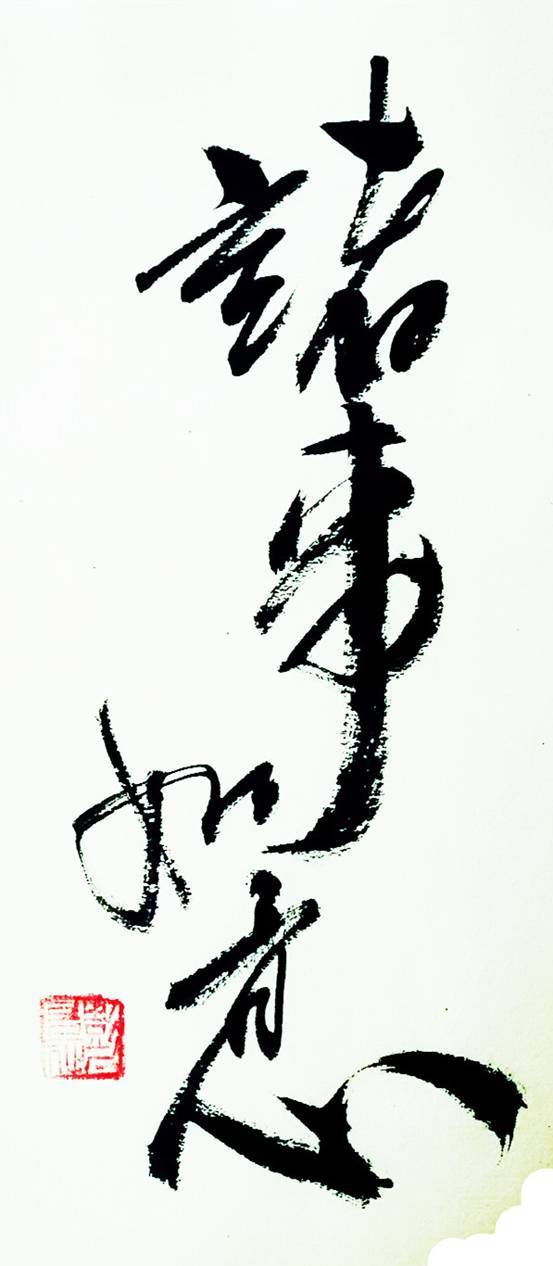 諸事如意